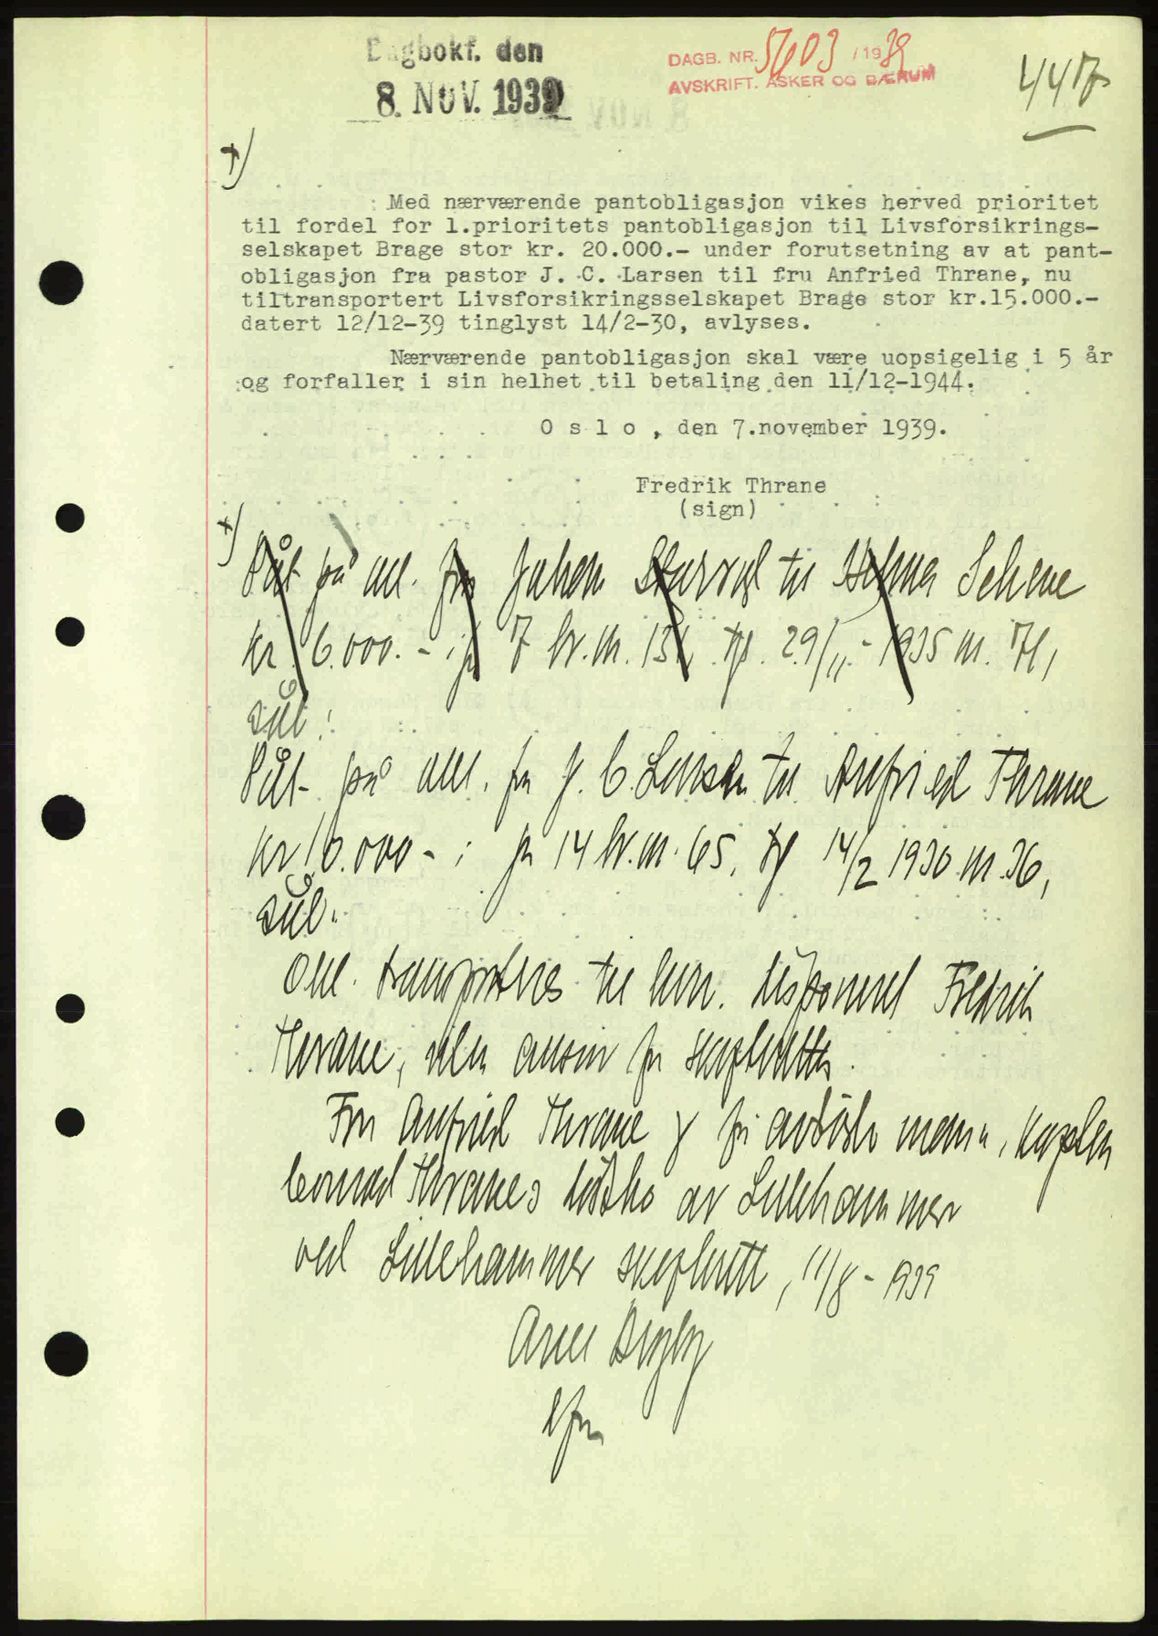 Dagbokf. den
8. NOV. 1939
DAGB. NR. 5603 /1939
AVSKRIFT. ASKER OG BÆRUM
447
+)
Med nærværende pantobligasjon vikes herved prioritet
til fordel for 1.prioritets pantobligasjon til Livsforsikrings-
selskapet Brage stor kr. 20.000.- under forutsetning av at pant-
obligasjon fra pastor J. C. Larsen til fru Anfried Thrane, nu
tiltransportert Livsforsikringsselskapet Brage stor kr.15.000.-
datert 12/12-39 tinglyst 14/2-30, avlyses.
Nærværende pantobligasjon skal være uopsigelig i 5 år
og forfaller i sin helhet til betaling den 11/12-1944.
O s l o , den 7.november 1939.
Fredrik Thrane
(sign)
+)
Påt på obl. fra Johan til Helma Schene
kr. 6.000.- 7 29/11-1935 m. 71,
sål:
Påt på obl. fra J. C. Larsen til Anfried Thrane
kr 10.000- : 14 65, tgl 14/2 1930 m. 36,
sål:
Obl. transporteres til herr disponent Fredrik
Thrane, uten ansvar for skifteretten.
Fru Anfried Thrane og avdøde mann, kaptein
Thranes av Lillehammer
ved Lillehammer skifterett, 11/8-1939
Arne